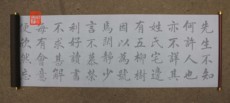 先生不知
何許人也
亦不詳其
姓氏宅邊
有五柳樹
因以為號
焉閑靜少
言不慕榮
利好讀書
不求甚解
每有會意
便欣然忘